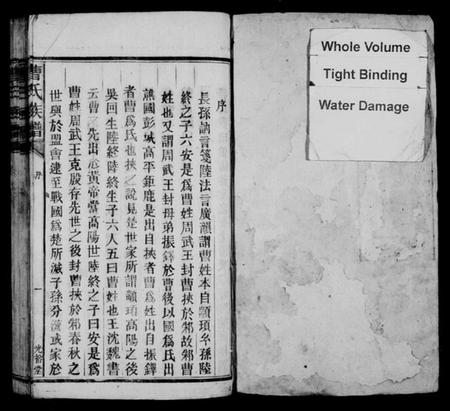 序
長孫訥言箋陸法言廣韻謂曹姓本自顓頊玄孫陸
終之子六安是為曹姓周武王封曹挾於邾故邾曹
姓也又謂周武王封母弟振鐸於曹後以國為氏出
譙國彭城高平鉅鹿是出自挾者曹為姓出自振鐸
者曹為氏也挾之說見楚世家所謂顓頊高陽之後
吳回生陸終陸終生子六人五曰曹姓也王沈魏書
云曹之先出於黃帝當高陽世陸終之子曰安是為
曹姓周武王克殷存先世之後封曹挾於邾春秋之
世與於盟會逮至戰國為楚所滅子孫分流或家於
曹氏族譜
序
一
光裕堂
Whole Volume
Tight Binding
Water Damage